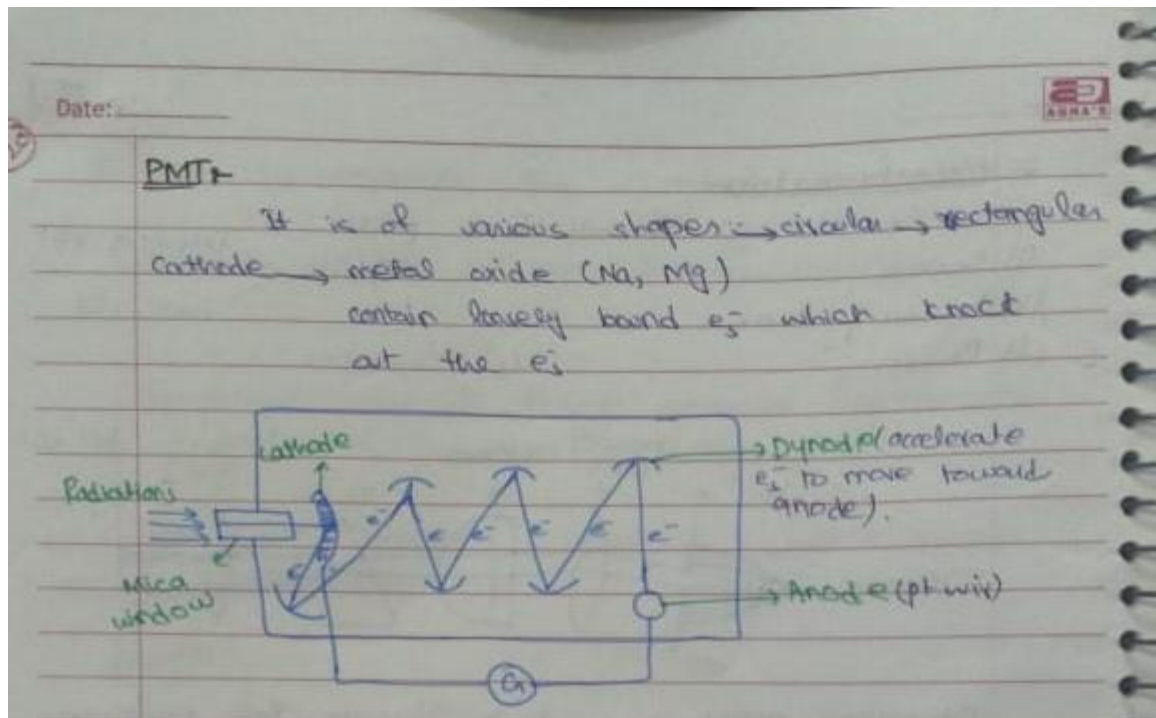 Date:
AGHA'S
PMT
It is of various shapes :→ circular → rectangular
Cathode → metal oxide (Na, Mg)
contain loosely band es⁻ which knock
out the es⁻
Cathode
Radiations
→ Dynode (accelerate
es⁻ to move toward
anode).
e⁻ e⁻ e⁻ e⁻ e⁻ e⁻
e⁻
Mica
window
→ Anode (pt wir)
G